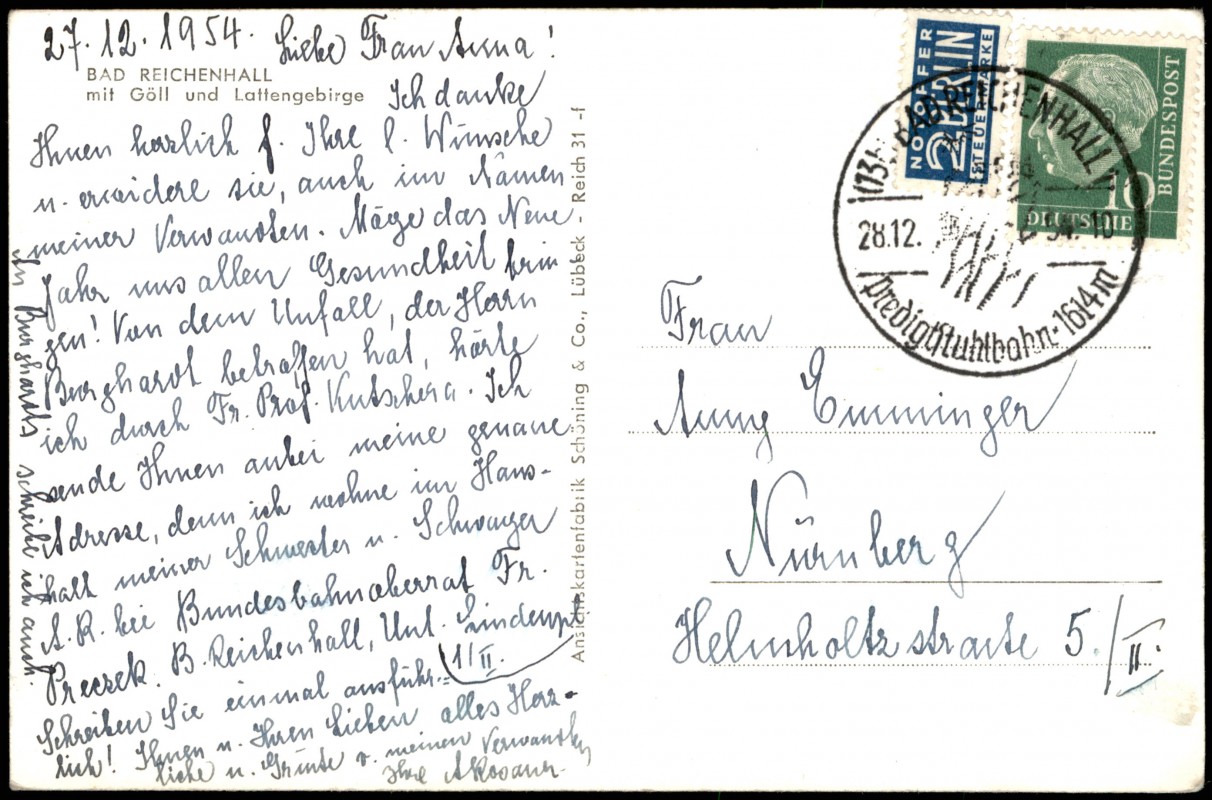 27.12.1954. Liebe Frau Anna!
BAD REICHENHALL
mit Göll und Lattengebirge
Ich danke
Ihnen herzlich f. Ihre l. Wünsche
u. erwidere sie, auch im Námen
meiner Verwandten. Möge das Neue
Jahr uns allen Gesundheit brin
gen! Von dem Unfall, der Herrn
Burghardt betroffen hat, hörte
ich durch Fr. Prof. Kutschera. Ich
sende Ihnen anbei meine genaue
Adresse, denn ich wohne im Haus-
halt meiner Schwester u. Schwager
A.R. bei Bundesbahnoberrat Fr.
Preczek. B. Reichenhall, Unt. Lindenpl.
1/II.
Schreiben Sie einmal ausführ-
lich! Ihnen u. Ihren Lieben alles Herz-
liche u. Grüße v. meinen Verwandten
Ihre
An Burghardts schreibe ich auch.
Ansichtskartenfabrik Schöning & Co., Lübeck - Reich 31 -f
NOTOPFER
2 BERLIN
STEUERMARKE
DEUTSCHE
BUNDESPOST
10
(13b) BAD REICHENHALL 1
28.12. 54. 10
Predigtstuhlbahn·1614m
Frau
Anny Emminger
Nürnberg
Helmholtzstraße 5./II.